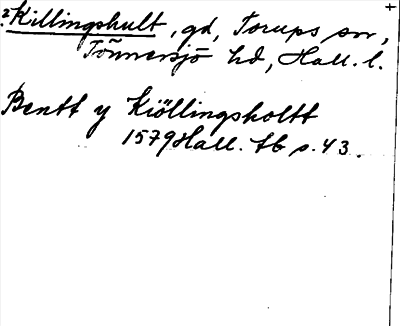 2 Killingshult, gd, Torups sn,
Tönnersjö hd, Hall. l.
Bentt y Kiöllingsholtt
1579 Hall. tb s. 43.